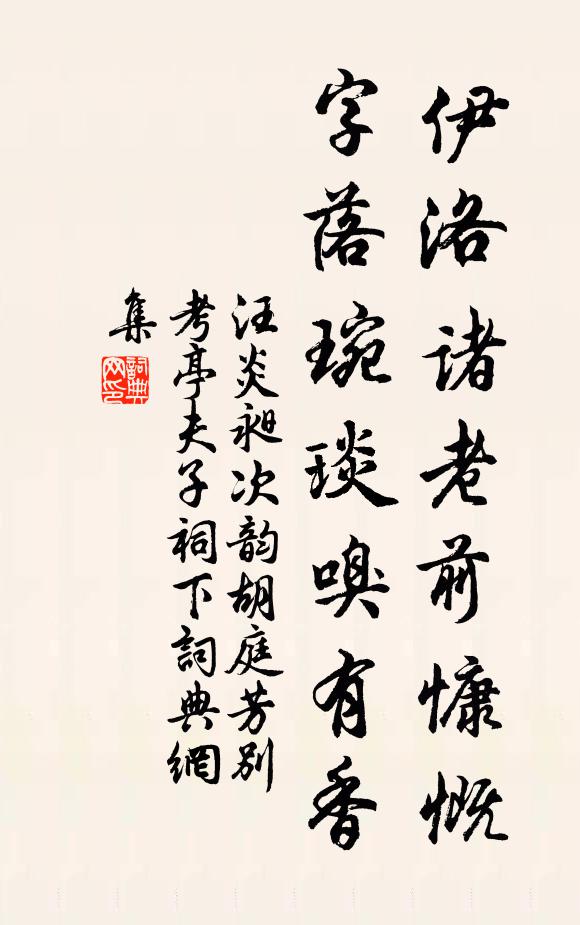 伊洛诸老前慷慨
字落琬琰嗅有香
汪炎昶次韵胡庭芳别
考亭夫子祠下詞典網
集
詞典网印